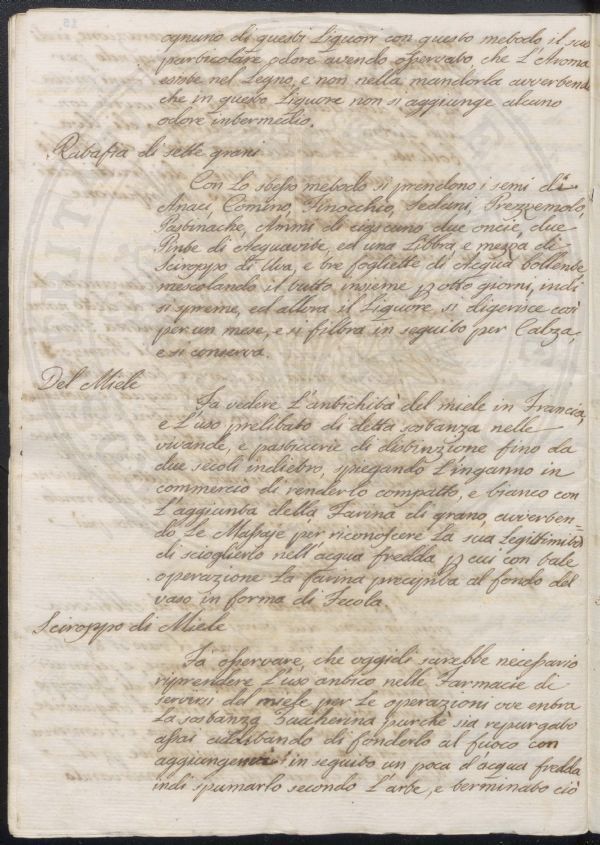 ognuno di questi Liquori con questo metodo il suo
particolare odore avendo osservato, che L'Aroma
esiste nel Legno, e non nella mandorla avvertendo
che in questo Liquore non si aggiunge alcuno
odore intermedio.
Ratafia di sette grani
Con Lo stesso metodo si prendono i semi di
Anaci, Comino, Finocchio, Sedani, Prezzemolo,
Pastinache, Ammi di ciascuno due oncie, due
Pinte di Acquavite, ed una Libbra, e mezza di
Sciroppo di Uva, e tre fogliette di Acqua bollente,
mescolando il tutto insieme p otto giorni, indi
si spreme, ed allora il Liquore si digerisce così
per un mese, e si filtra in seguito per Calza,
e si conserva.
Del Miele
Fa vedere L'antichità del miele in Francia,
e L'uso prelibato di detta sostanza nelle
vivande, e pasticcerie di distinzione fino da
due secoli indietro, spiegando L'inganno in
commercio di renderlo compatto, e bianco con
L'aggiunta della Farina di grano, avverten=
do Le Massaje per riconoscere La sua Legittimità
di scioglierlo nell'acqua fredda, p cui con tale
operazione La farina precipita al fondo del
vaso in forma di Fecola.
Sciroppo di Miele
Fa osservare, che oggidì sarebbe necessario
riprendere L'uso antico nelle Farmacie di
servirsi del miele per Le operazioni ove entra
La sostanza Zuccherina purchè sia repurgato
assai evitando di fonderlo al fuoco con
aggiungervi in seguito un poca d'acqua fredda
indi spumarlo secondo L'arte, e terminato ciò